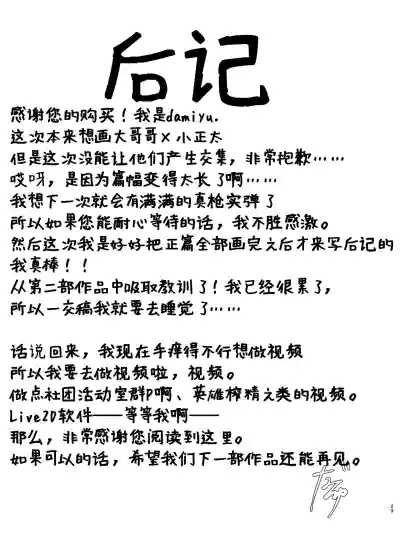 后记
感谢您的购买！我是damiyu.
这次本来想画大哥哥×小正太
但是这次没能让他们产生交集，非常抱歉……
哎呀，是因为篇幅变得太长了啊……
我想下一次就会有满满的真枪实弹了
所以如果您能耐心等待的话，我不胜感激。
然后这次我是好好把正篇全部画完之后才来写后记的
我真棒！！
从第二部作品中吸取教训了！我已经很累了，
所以一交稿我就要去睡觉了……
话说回来，我现在手痒得不行想做视频
所以我要去做视频啦，视频。
做点社团活动室群P啊、英雄榨精之类的视频。
Live2D软件——等等我啊——
那么，非常感谢您阅读到这里。
如果可以的话，希望我们下一部作品还能再见。